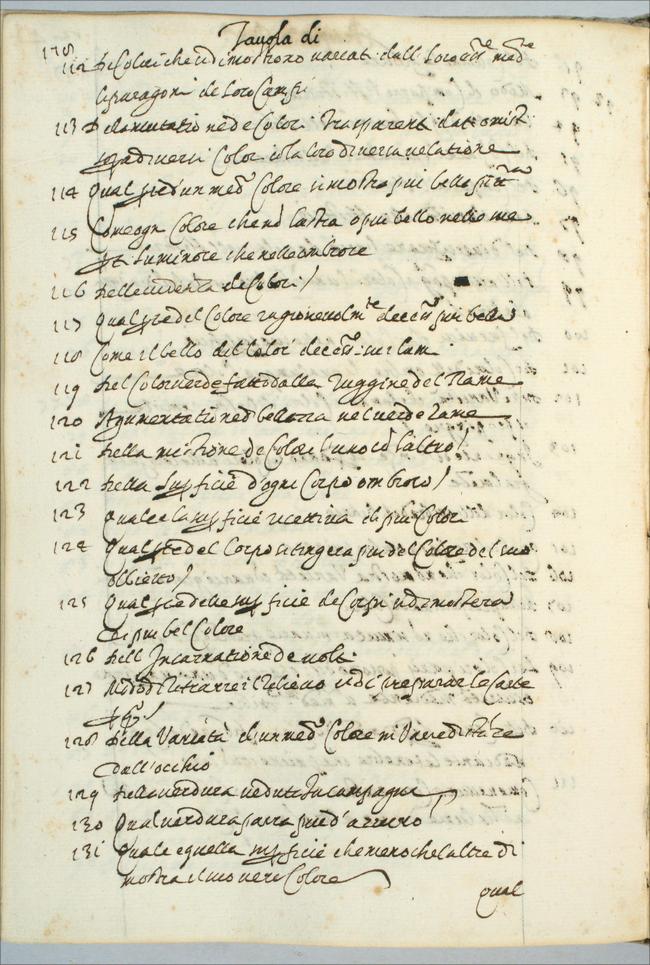 Tavola di
178
112 De Colori che si dimostrono variati dall loro essere med.te
li paragoni de loro Campi
113 Della mutatione de Colori trasparenti dati o misti
sopra diversi Colori cō la loro diversa velatione
114 Qual parte d'un med.o Colore si mostra piu bella in pittura
115 Come ogni Colore che nō lustra e piu bello nelle me
parti luminose che nelle ombrose
116 Dell evidenza de Colori
117 Qual parte del Colore ragionevolm.te dee esser piu bella
118 Come il bello del Colore dee esser ne lumi
119 Del Color verde fatto dalla ruggine del Rame
120 Aqumentatione di bellezza nel verde rame
121 Della mistione de Colori l'uno cō l'altro
122 Della superficie d'ogni Corpo ombroso
123 Quale e la superficie ricettiva di piu Colori
124 Qual parte del Corpo si tingera piu del Colore del suo
obbietto
125 Qual parte della superficie de Corpi si dimostrera
di piu bel Colore
126 Dell Incarnatione de volti
127 Modo di ritrarre il rilievo et di preparar le Carte
128 Della Varietà di un med.o Colore
dall'occhio
129 Della verdura veduta In campagna
130 Qual verdura parra piu d'azzurro
131 Quale e quella superficie che meno che l'altre di
mostra il suo vero Colore
qual